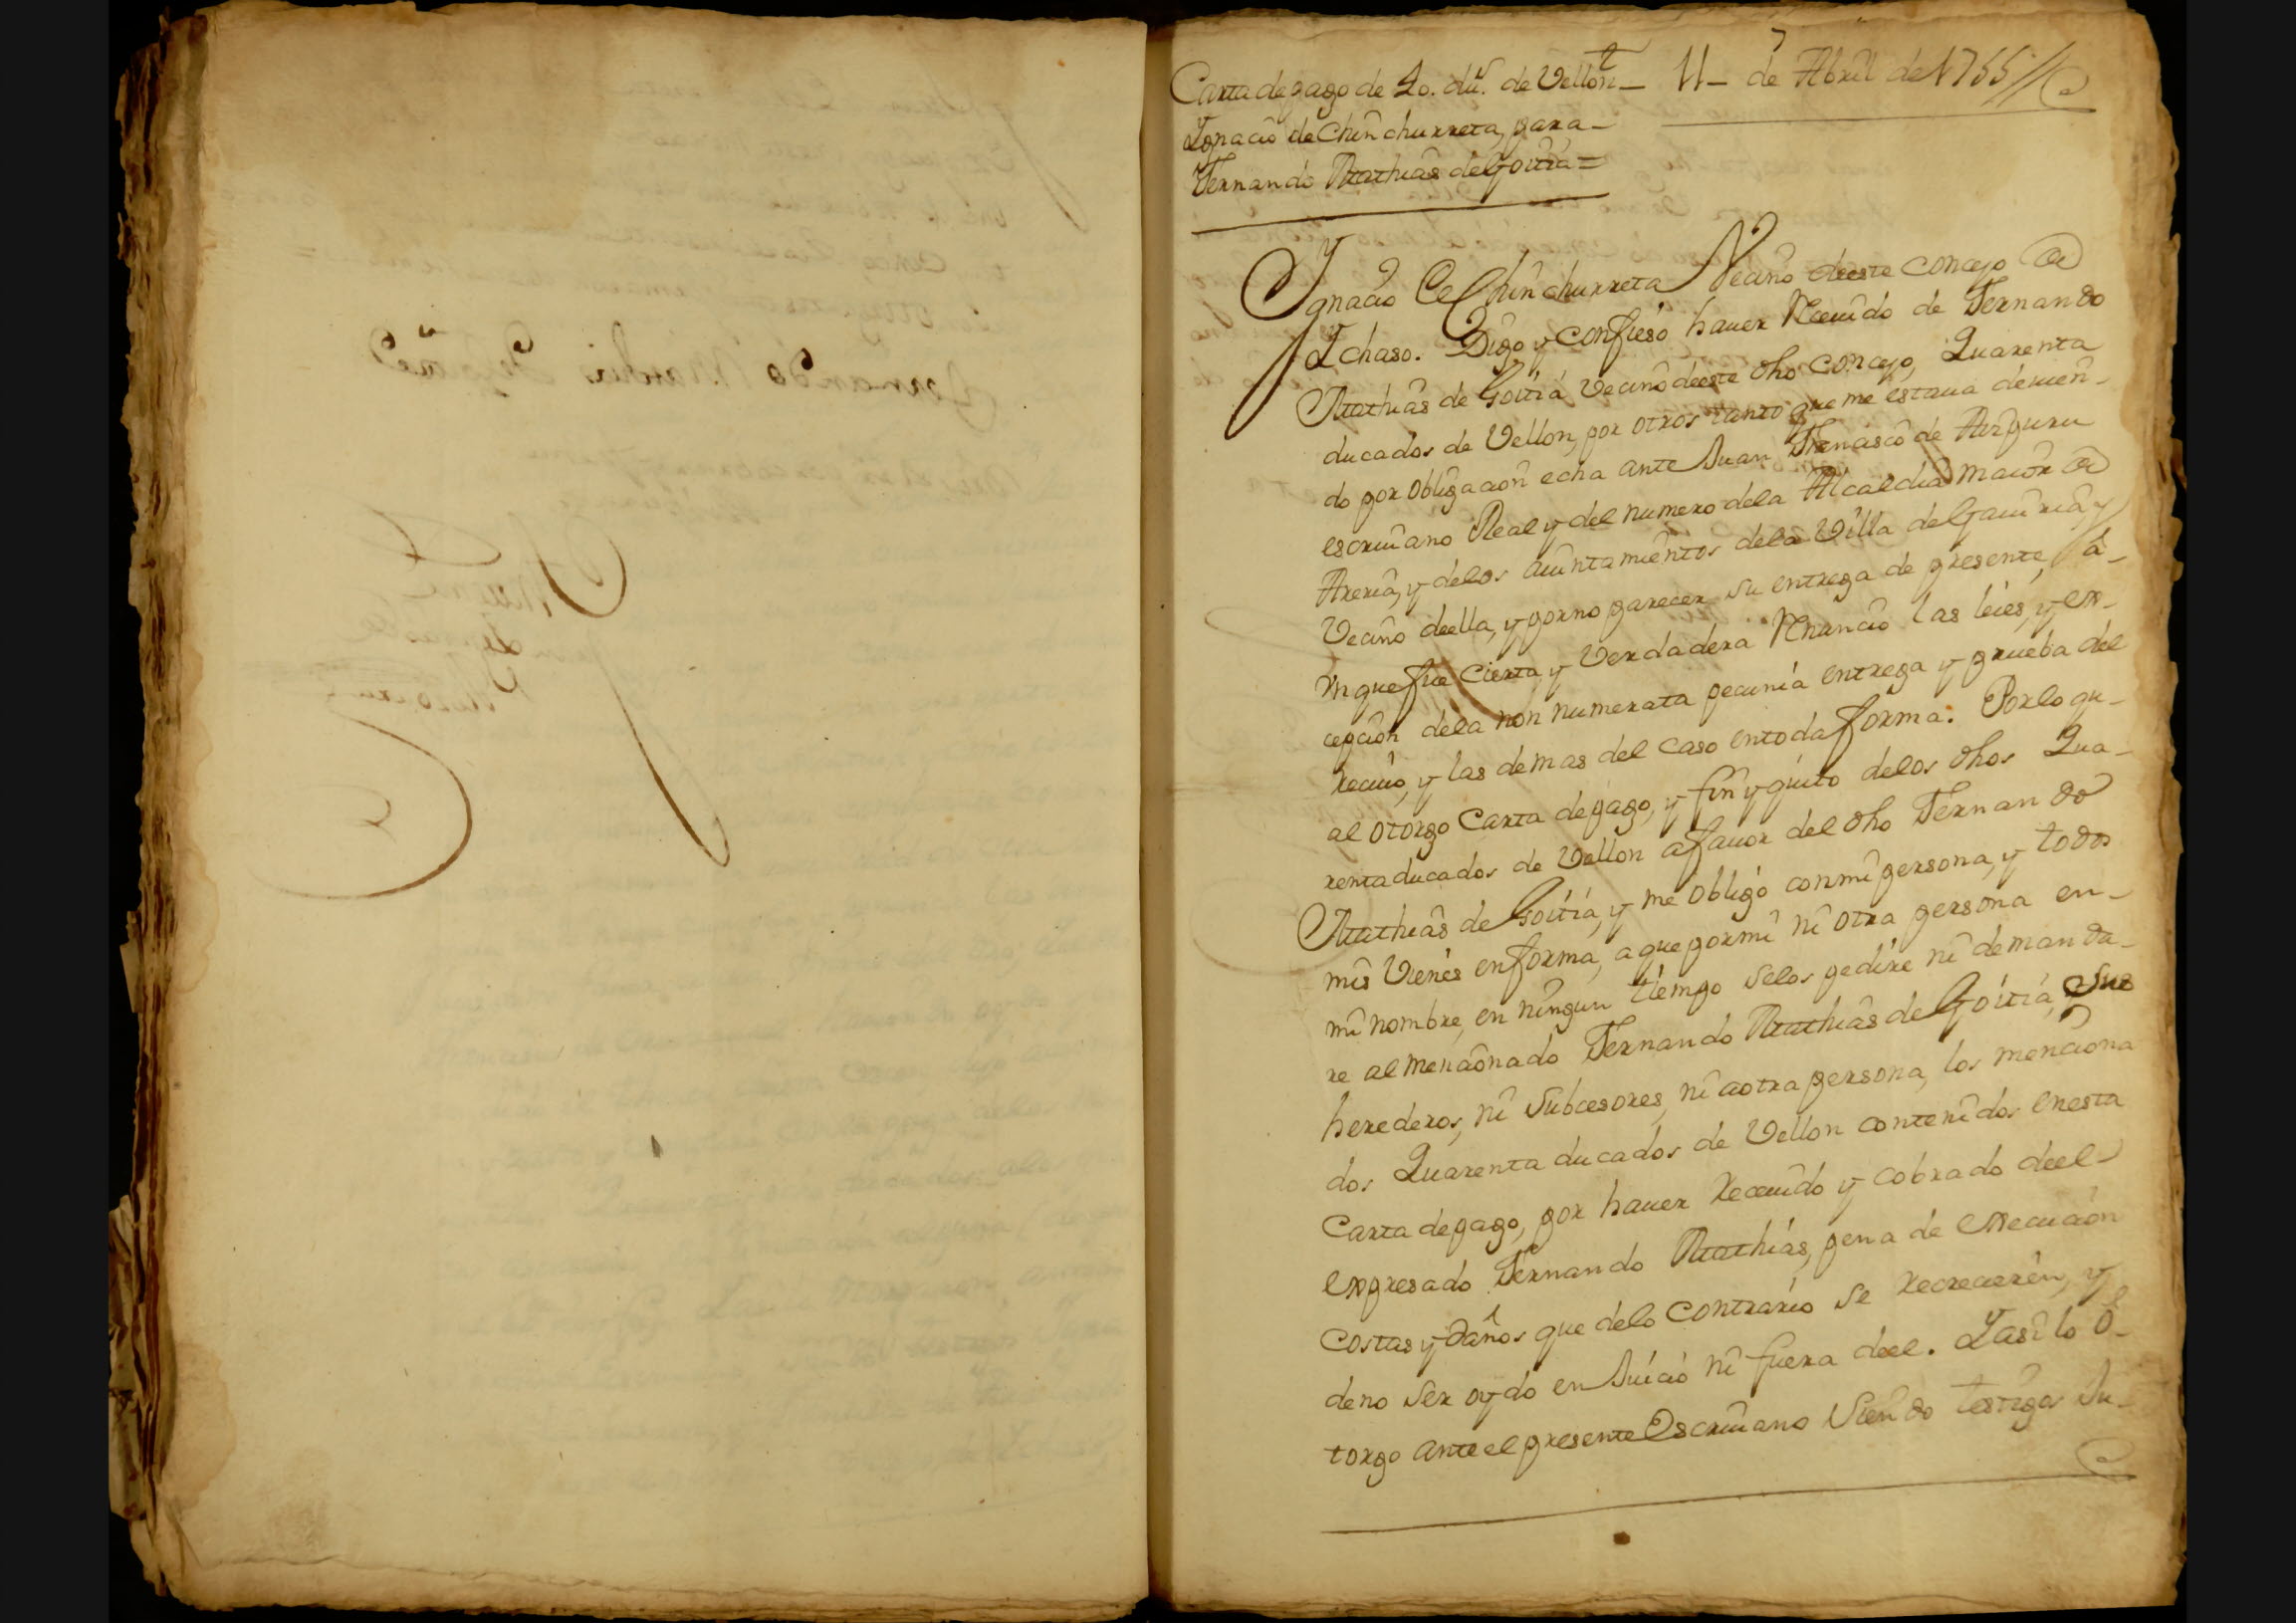 Carta de pago de 40. du.s de Vellon
Ygnacio de Chinchurreta, para
Fernando Mathias de Goitia =
11 de Abril de 1755
Ygnacio de Chinchurreta Vecino deeste concejo de
Ychaso. Digo y confieso hauer Receuido de Fernando
Mathias de Goitia vecino deeste dho concejo, Quarenta
ducados de Vellon, por otros tanto que me estaua deuien-
do por obligacion echa ante Juan Francisco de Aizpuru
escriuano Real y del numero dela Alcaldia maior de
Areria, y delos aiuntamientos dela Villa de Gauiria, y
Vecino deella, y por no parecer su entrega de presente, a-
vnque fue cierta y Verdadera Renuncio las leies, y ex-
cepcion dela non numerata pecunia entrega y prueba del
reciuo, y las demas del caso entoda forma. Porlo qu-
al otorgo Carta depago, y fin y quito delos dhos Qua-
renta ducados de Vellon afauor del dho Fernando
Mathias de Goitia, y me obligo conmi persona, y todos
mis Vienes enforma, a que pormi ni otra persona en-
mi nombre, en ningun tiempo selos pedire ni demanda-
re al mencionado Fernando Mathias de Goitia, sus
herederos, ni subcesores, ni aotra persona, los menciona
dos Quarenta ducados de Vellon contenidos enesta
Carta depago, por hauer Receuido y cobrado deel
expresado Fernando Mathias, pena de execucion
costas y daños que delo contrario se recrecieren, y
deno ser oydo en Juicio ni fuera deel. Y asi lo o-
torgo ante el presente Escriuano siendo testigos Ju-